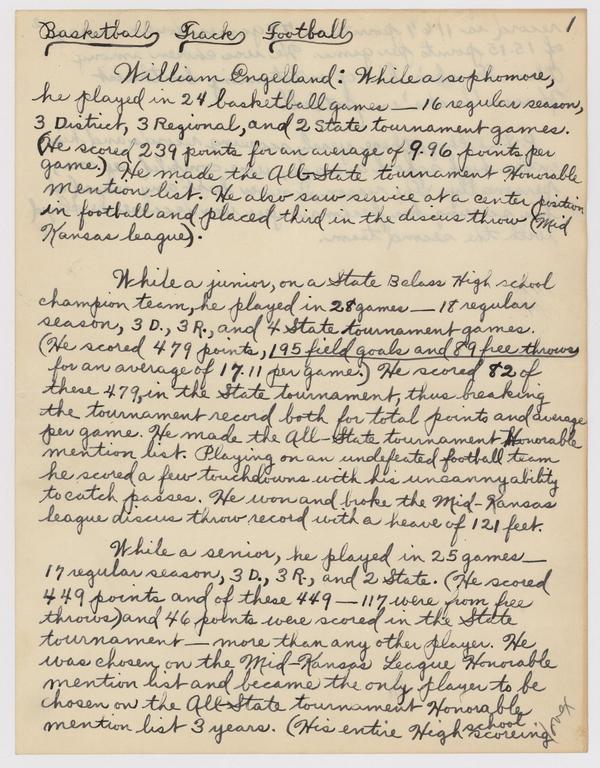 1
Basketball Track Football
William Engelland: While a sophomore,
he played in 24 basketball games — 16 regular season,
3 District, 3 Regional, and 2 State tournament games.
(He scored 239 points for an average of 9.96 points per
game.) He made the All-State tournament Honorable
mention list. He also saw service at a center position
in football and placed third in the discus throw (Mid
Kansas league).
While a junior, on a State B class High school
champion team, he played in 28 games — 18 regular
season, 3 D., 3 R., and 4 State tournament games.
(He scored 479 points, 195 field goals and 89 free throws
for an average of 17.11 per game.) He scored 82 of
these 479, in the State tournament, thus breaking
the tournament record both for total points and average
per game. He made the All-State tournament Honorable
mention list. Playing on an undefeated football team
he scored a few touchdowns with his uncanny ability
to catch passes. He won and broke the Mid-Kansas
league discus throw record with a heave of 121 feet.
While a senior, he played in 25 games —
17 regular season, 3 D., 3 R., and 2 State. (He scored
449 points and of these 449 — 117 were from free
throws) and 46 points were scored in the State
tournament — more than any other player. He
was chosen on the Mid-Kansas League Honorable
mention list and became the only player to be
chosen on the All-State tournament Honorable
mention list 3 years. (His entire High school scoreing
over